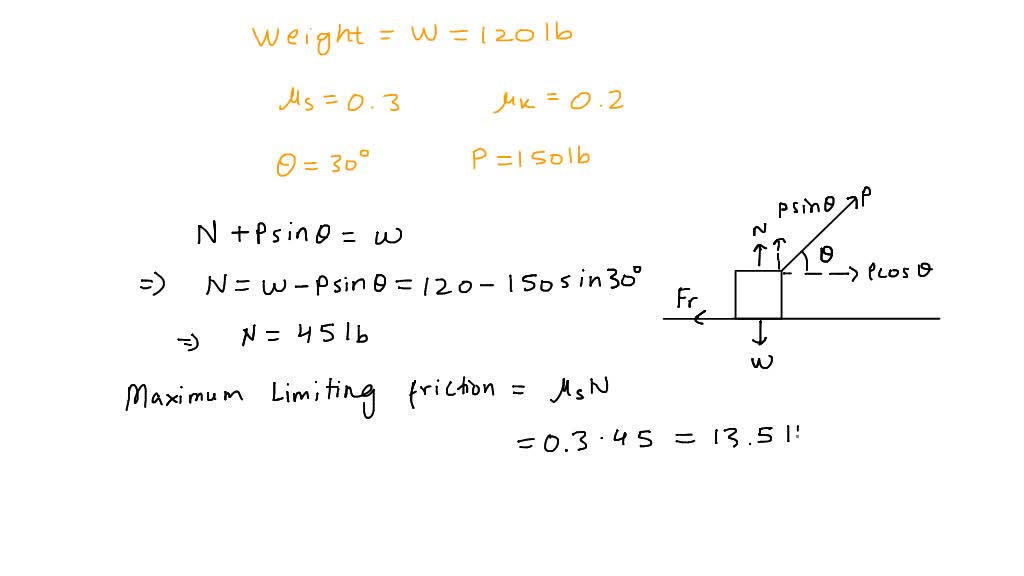 Weight = W = 120 lb
μs = 0.3 μk = 0.2
θ = 30° P = 150 lb
N + Psinθ = W
=> N = W - Psinθ = 120 - 150 sin 30°
=> N = 45 lb
Maximum Limiting friction = μsN
= 0.3 · 45 = 13.5
Psinθ P
N
θ
Pcosθ
Fr
W